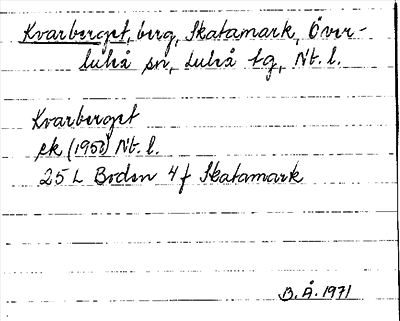 Kvarberget, berg, Skatamark, Över-
luleå sn, Luleå tg, Nt. l.
Kvarberget
ek (1950) Nt. l.
25 L Boden 4 f Skatamark
B. Å. 1971